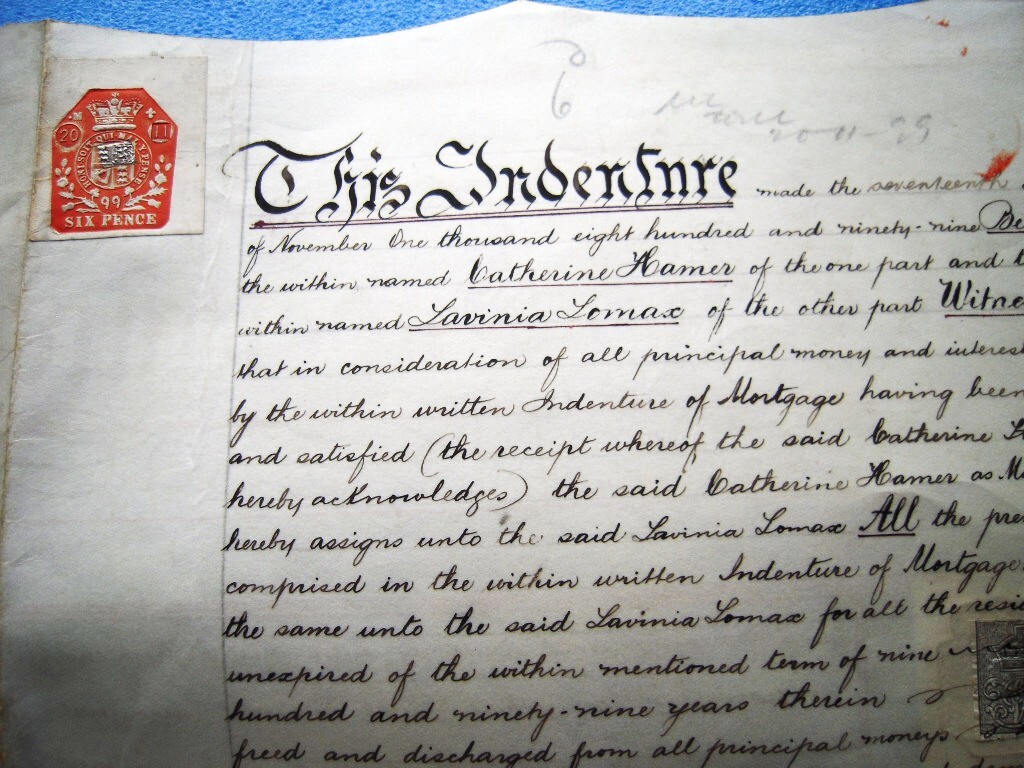 20 11
HONI SOIT QUI MAL Y PENSE
99
SIX PENCE
20-11-99
This Indenture made the seventeenth
of November One thousand eight hundred and ninety-nine
the within named Catherine Hamer of the one part and
within named Lavinia Lomax of the other part
that in consideration of all principal money and interest
by the within written Indenture of Mortgage having been
and satisfied (the receipt whereof the said Catherine
hereby acknowledges) the said Catherine Hamer as
hereby assigns unto the said Lavinia Lomax All the
comprised in the within written Indenture of Mortgage
the same unto the said Lavinia Lomax for all the
unexpired of the within mentioned term of nine
hundred and ninety-nine years therein
freed and discharged from all principal moneys